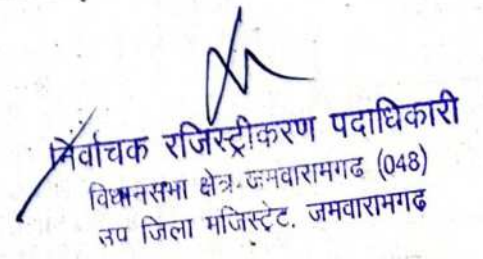 निर्वाचक रजिस्ट्रीकरण पदाधिकारी
विधानसभा क्षेत्र-जमवारामगढ (048)
उप जिला मजिस्ट्रेट. जमवारामगढ